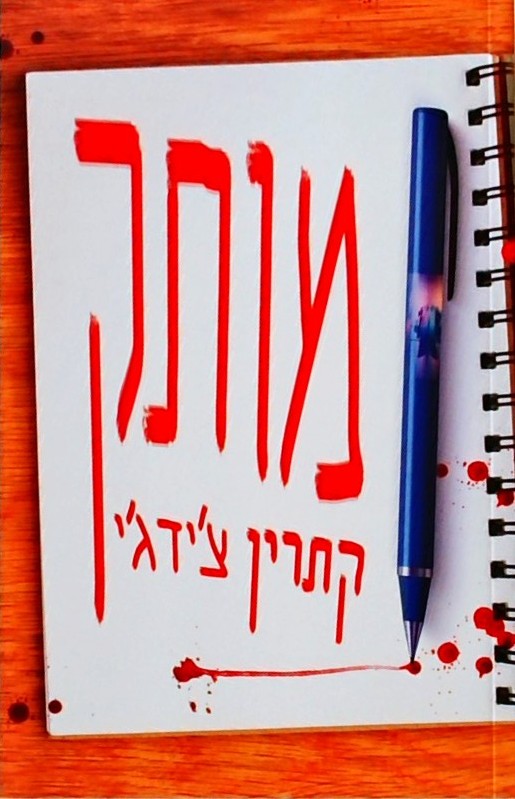 מותק
קתרין צ'ידג'י